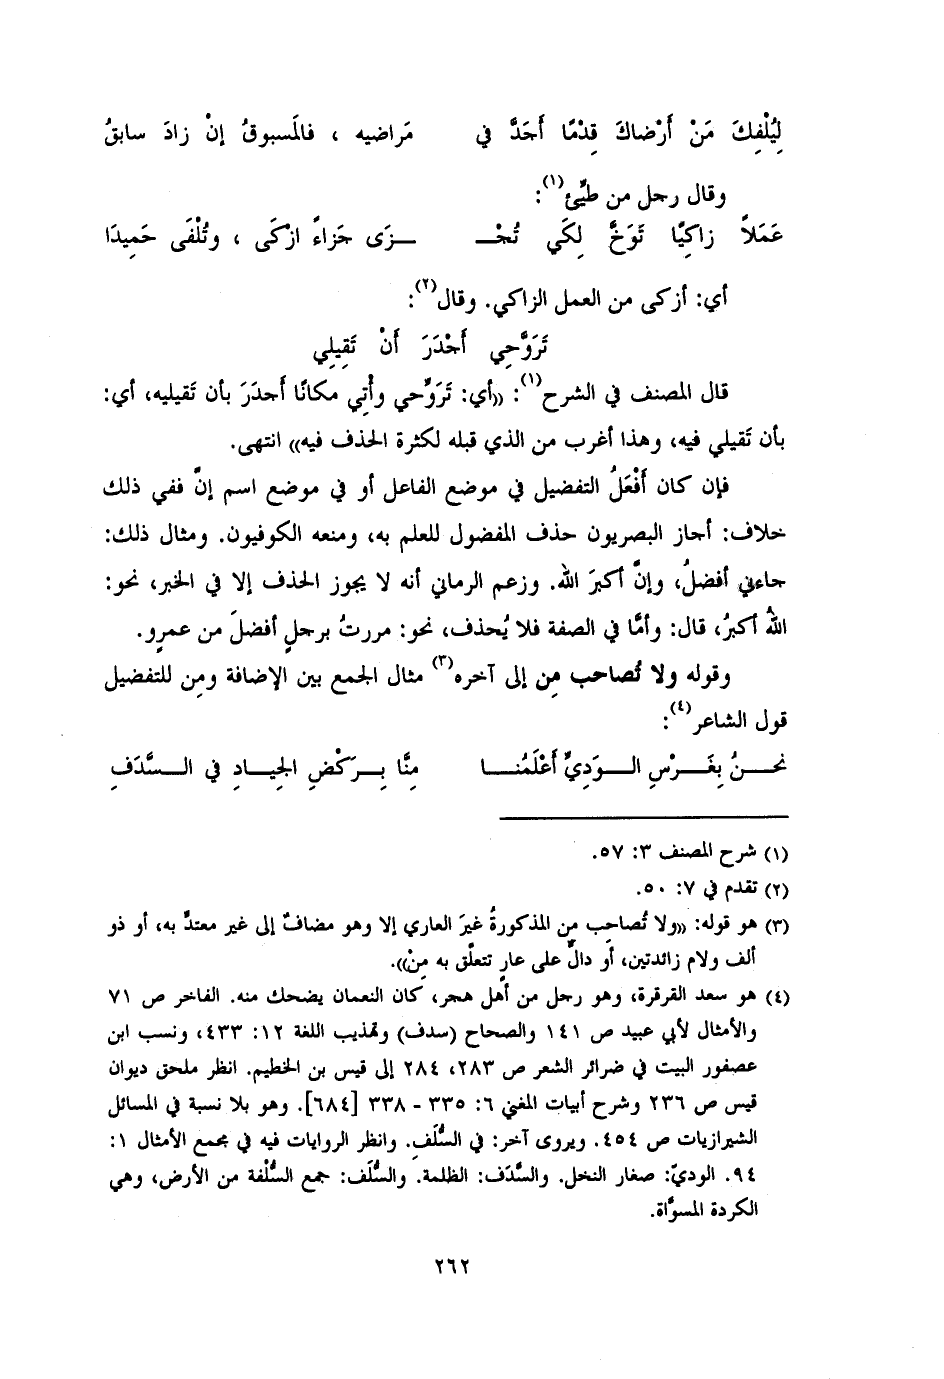 لِيُلْفِكَ مَنْ أَرْضاكَ قِدْمًا أَجَدَّ في مَراضيه ، فالمَسبوقُ إنْ زادَ سابقُ
وقال رجل من طيِّئ(١):
عَمَلاً زاكِيًا تَوَخَّ لِكَي تُجْـ ـزَى جَزاءً ازْكَى ، وتُلْفَى حَمِيدَا
أي: أزكى من العمل الزاكي. وقال(٢):
تَرَوَّحِي أَجْدَرَ أَنْ تَقِيلِي
قال المصنف في الشرح(١): «أي: تَرَوَّحي وأْتِي مكانًا أجدَرَ بأن تَقيليه، أي:
بأن تَقيلي فيه، وهذا أغرب من الذي قبله لكثرة الحذف فيه» انتهى.
فإن كان أَفْعَلُ التفضيل في موضع الفاعل أو في موضع اسم إنَّ ففي ذلك
خلاف: أجاز البصريون حذف المفضول للعلم به، ومنعه الكوفيون. ومثال ذلك:
جاءني أفضلُ، وإنَّ أكبرَ الله. وزعم الرماني أنه لا يجوز الحذف إلا في الخبر، نحو:
اللهُ أكبرُ، قال: وأمَّا في الصفة فلا يُحذف، نحو: مررتُ برجلٍ أفضلَ من عمرٍو.
وقوله ولا تُصاحب مِن إلى آخره(٣) مثال الجمع بين الإضافة ومِن للتفضيل
قول الشاعر(٤):
نحــنُ بِغَــرْسِ الــوَدِيِّ أَعْلَمُنــا مِنَّا بِــرَكْضِ الجِيــادِ في الــسَّدَفِ
(١) شرح المصنف ٣: ٥٧.
(٢) تقدم في ٧: ٥٠.
(٣) هو قوله: «ولا تُصاحب مِن المذكورةُ غيرَ العاري إلا وهو مضافٌ إلى غير معتدٍّ به، أو ذو
ألف ولام زائدتين، أو دالٌّ على عارٍ تتعلَّق به مِنْ».
(٤) هو سعد القرقرة، وهو رجل من أهل هجر، كان النعمان يضحك منه. الفاخر ص ٧١
والأمثال لأبي عبيد ص ١٤١ والصحاح (سدف) وتهذيب اللغة ١٢: ٤٣٣، ونسب ابن
عصفور البيت في ضرائر الشعر ص ٢٨٣، ٢٨٤ إلى قيس بن الخطيم. انظر ملحق ديوان
قيس ص ٢٣٦ وشرح أبيات المغني ٦: ٣٣٥ - ٣٣٨ [٦٨٤]. وهو بلا نسبة في المسائل
الشيرازيات ص ٤٥٤. ويروى آخر: في السُّلَفِ. وانظر الروايات فيه في مجمع الأمثال ١:
٩٤. الوديّ: صغار النخل. والسُّدَف: الظلمة. والسُّلَف: جمع السُّلْفة من الأرض، وهي
الكردة المسوَّاة.
٢٦٢